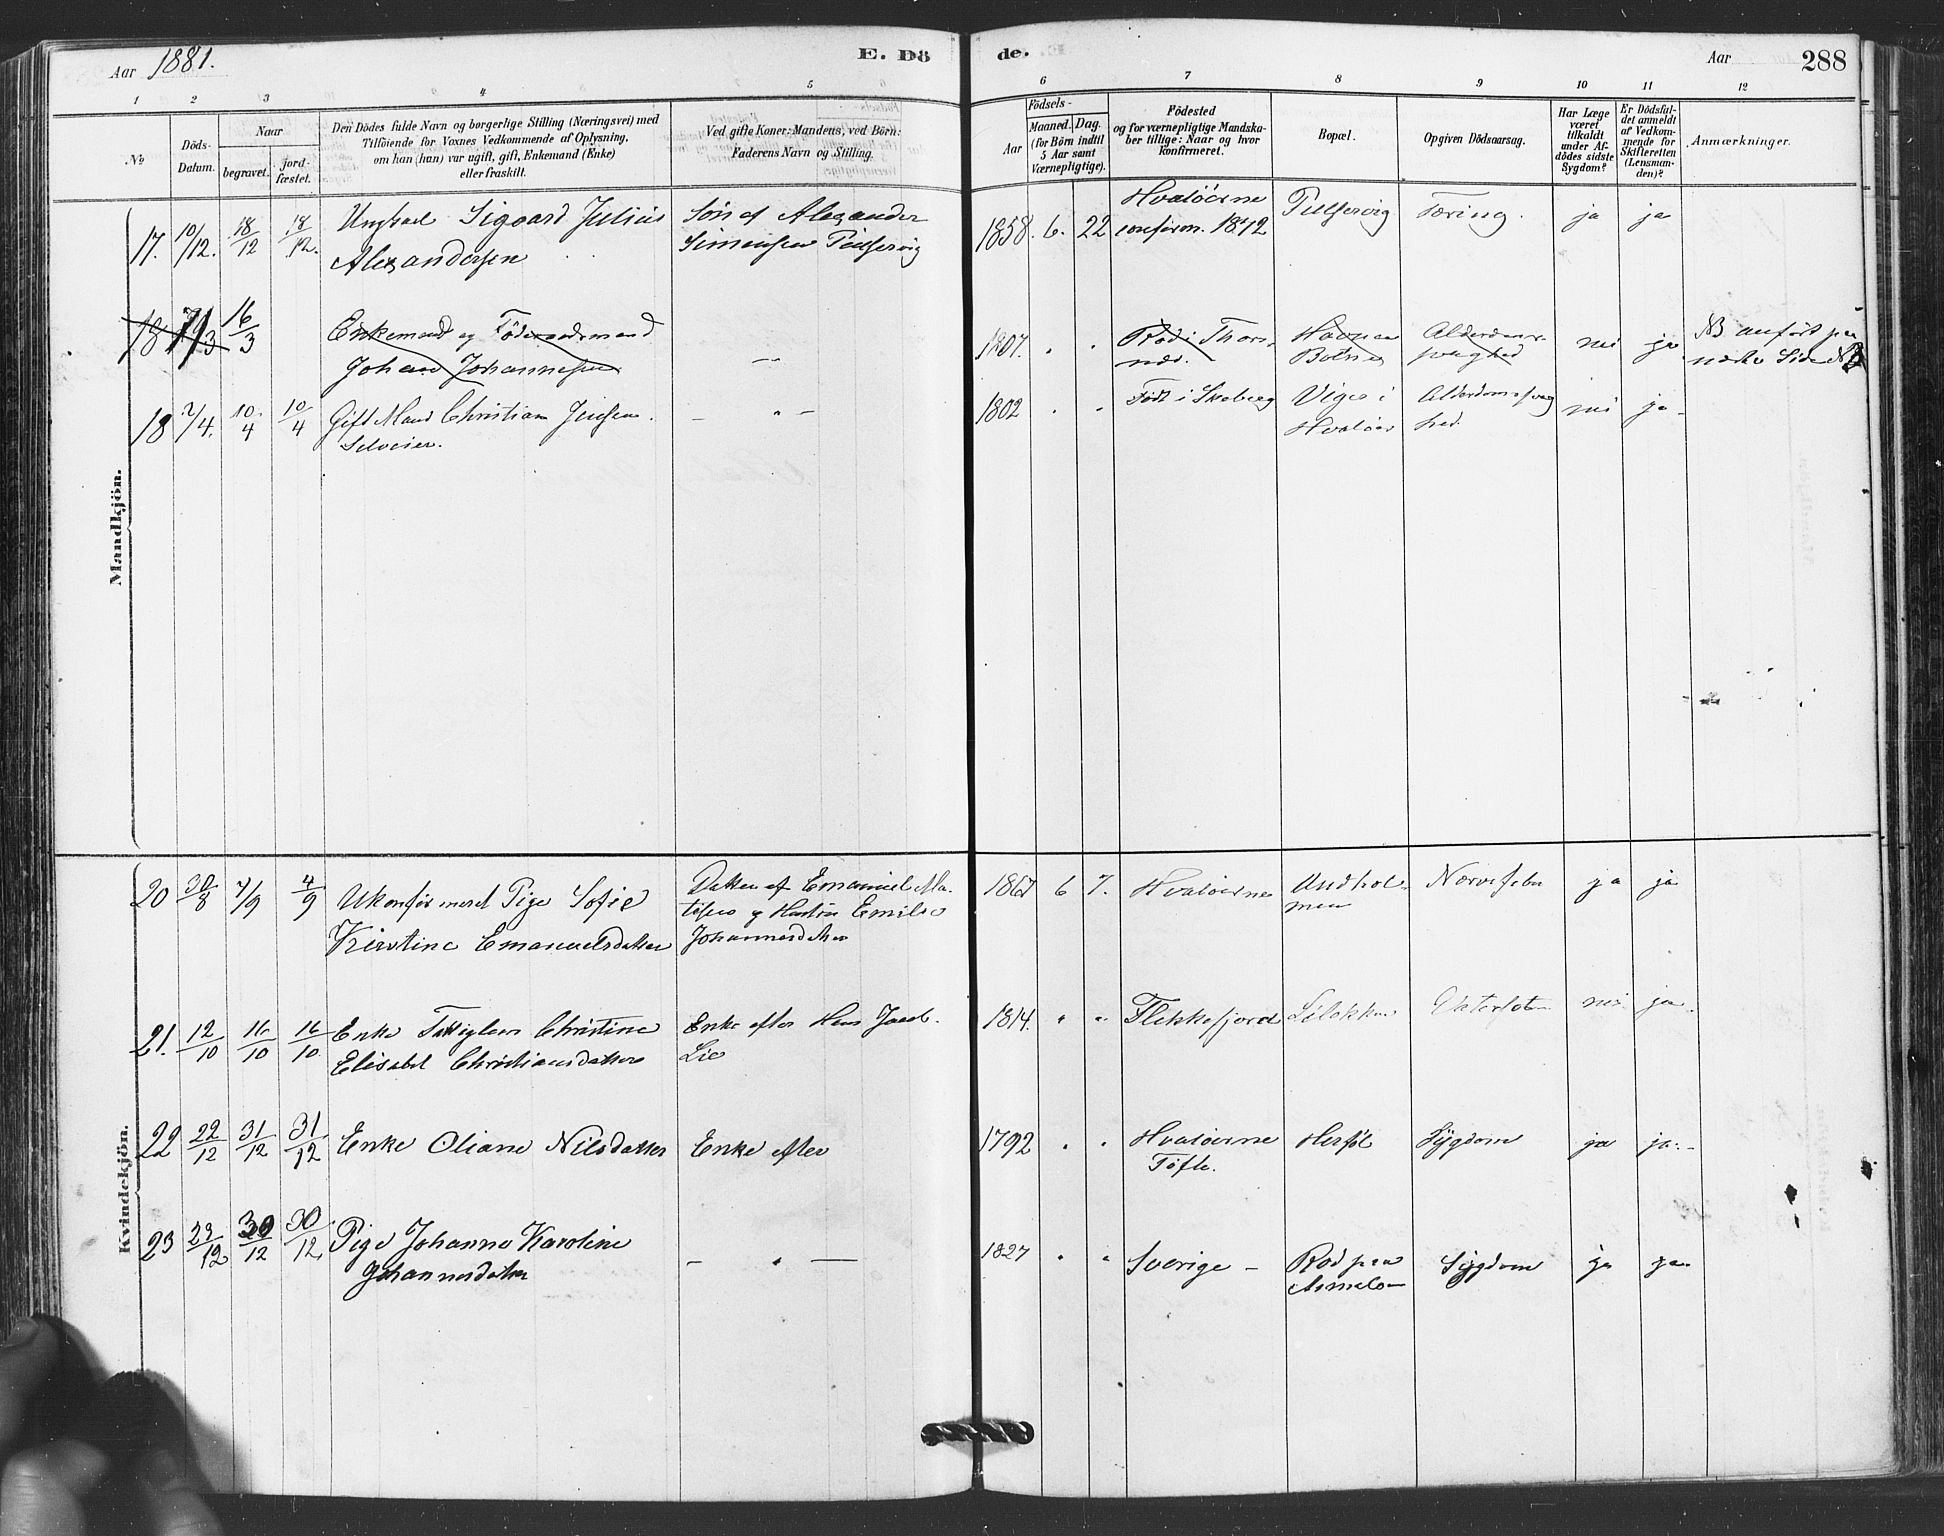 Aar 1881.
E. Dö
de.
Aar
288
1 2 3 4 5
6 7 8 9 10 11 12
No
Döds-
Datum.
Naar
begravet.
jord-
fæstet.
Den Dödes fulde Navn og borgerlige Stilling (Næringsvei) med
Tilföiende for Voxnes Vedkommende af Oplysning,
om han (hun) var ugift, gift, Enkemand (Enke)
eller fraskilt.
Ved gifte Koner: Mandens, ved Börn:
Faderens Navn og Stilling.
Födsels-
Aar
Maaned. Dag.
(for Börn indtil
5 Aar samt
Værnepligtige).
Födested
og for værnepligtige Mandska-
ber tillige: Naar og hvor
konfirmeret.
Bopæl.
Opgiven Dödsaarsag.
Har Læge
været
tilkaldt
under Af-
dödes sidste
Sygdom?
Er Dödsfal-
det anmeldt
af Vedkom-
mende for
Skifteretten
(Lensman-
den)?
Anmærkninger.
Mandkjön.
17. 10/12. 18/12 18/12. Ungkarl Sigvard Julius
Alexandersen
Søn af Alexander
Simensen
1858. 6. 22
Hvaløerne
confirm. 1872
Tæring. ja ja
18 7/3 16/3
Enkemand og Föderaadsmand
Johan Johannesen
- " -
1807. " "
Rød i Thors-
næs.
Alderdoms-
svaghed
nei ja
NB anført paa
næste Side
18 7/4. 10/4 10/4 Gift Mand Christian Jensen.
Selveier.
- " -
1802 " "
Født i Skeberg
Viger i
Hvaløer
Alderdomssvag
hed.
nei ja -
Kvindekjön.
20 30/8 4/9 4/9 Ukonfirmeret Pige Sofie
Kirstine Emanuelsdatter
Datter af Emanuel Ma-
tisen og Hustru Emilie
Johannesdatter
1867 6 7. Hvaløerne
Andhol-
men
Nervefeber ja ja
21. 12/10 16/10 16/10 Enke Christine
Elisabet Christiansdatter
Enke efter Hans Jacob
Lie
1814. " " Flekkefjord Lilekka
nei ja
22 22/12 31/12 31/12 Enke Oliane Nilsdatter Enke efter
1792 " " Hvaløerne
Tøfte.
Herføl Sygdom ja ja. -
23 23/12 30/12 30/12 Pige Johanne Karoline
Johannesdatter
- " -
1827 " " Sverige -
Rød paa
Asmaløen
Sygdom ja ja